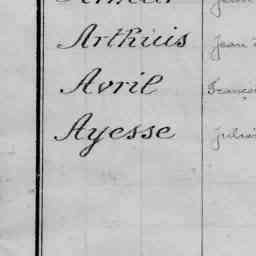 Arthuis Jean
Avril François
Ayesse Julia